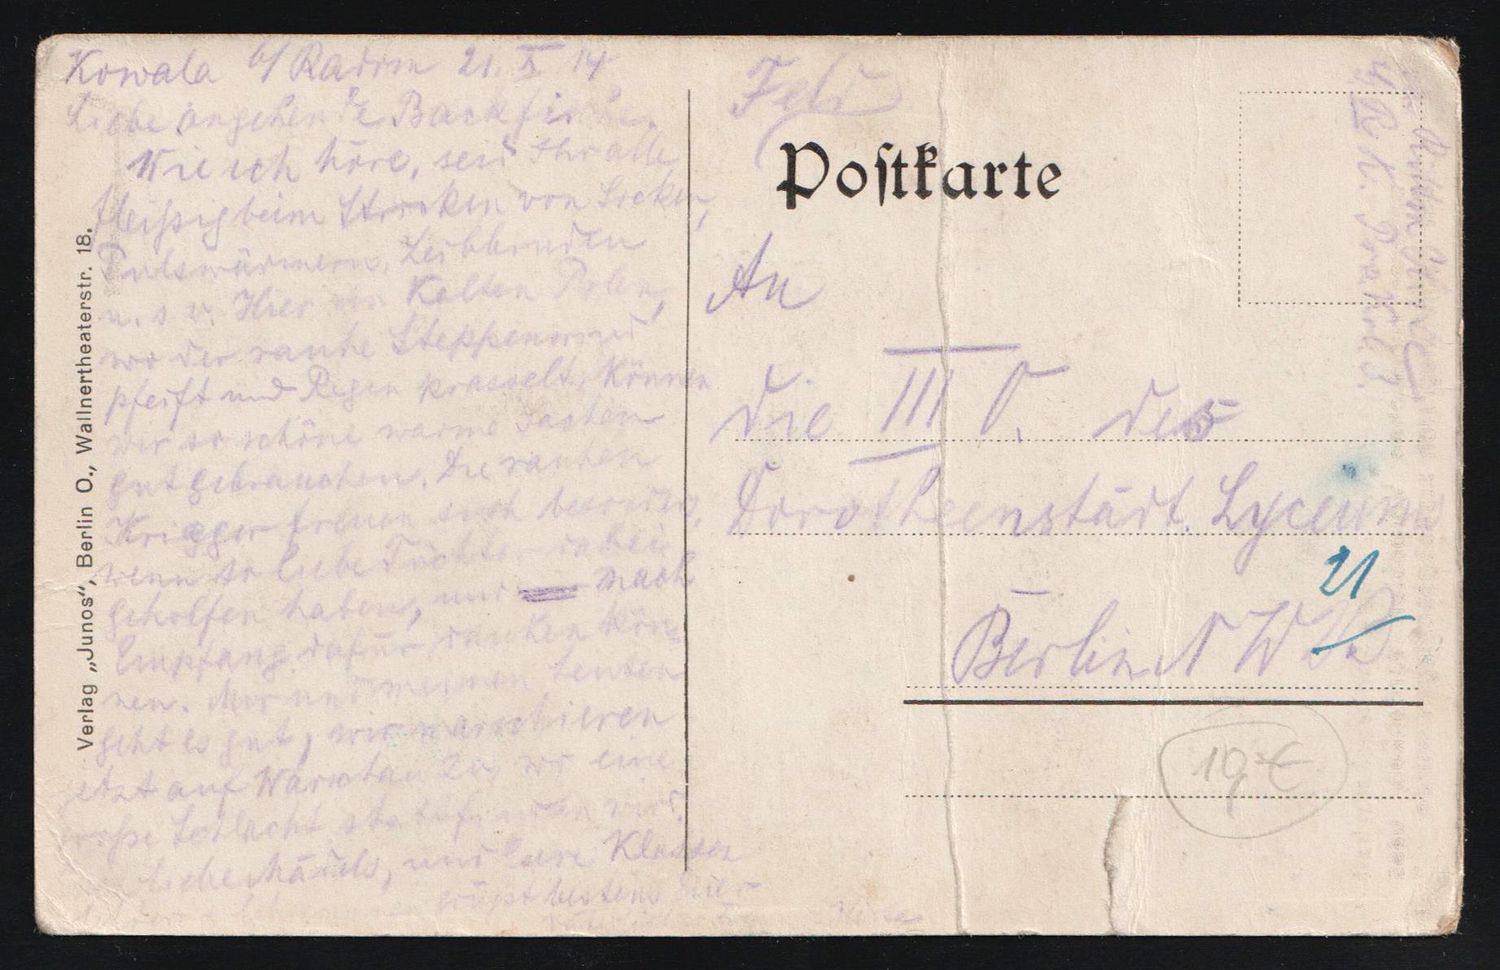 Kowala b/ Radom 21. X 14
Liebe angehende Backfische.
Wie ich höre, seid Ihr alle
fleißig beim Stricken von Socken,
Pulswärmern, Leibbinden
u. s w. Hier im Kalten Polen,
wo der rauhe Steppenwind
pfeift und Regen prasselt, Können
wir so schöne warme Sachen
gut gebrauchen. Die rauhen
Krieger freuen sich besonders,
wenn so liebe Töchter dabei
geholfen haben, und nach
Empfang dafür danken kön-
nen. Mir und meinen Leuten
geht es gut, wir marschieren
jetzt auf Warschau zu, wo eine
große Schlacht stattfinden wird.
liebe Mädels, und Eure Klasse
grüßt bestens Euer
Verlag „Junos“, Berlin O., Wallnertheaterstr. 18.
Postkarte
An
die III O. des
Dorotheenstädt. Lyceum
Berlin N W
21
19,-€